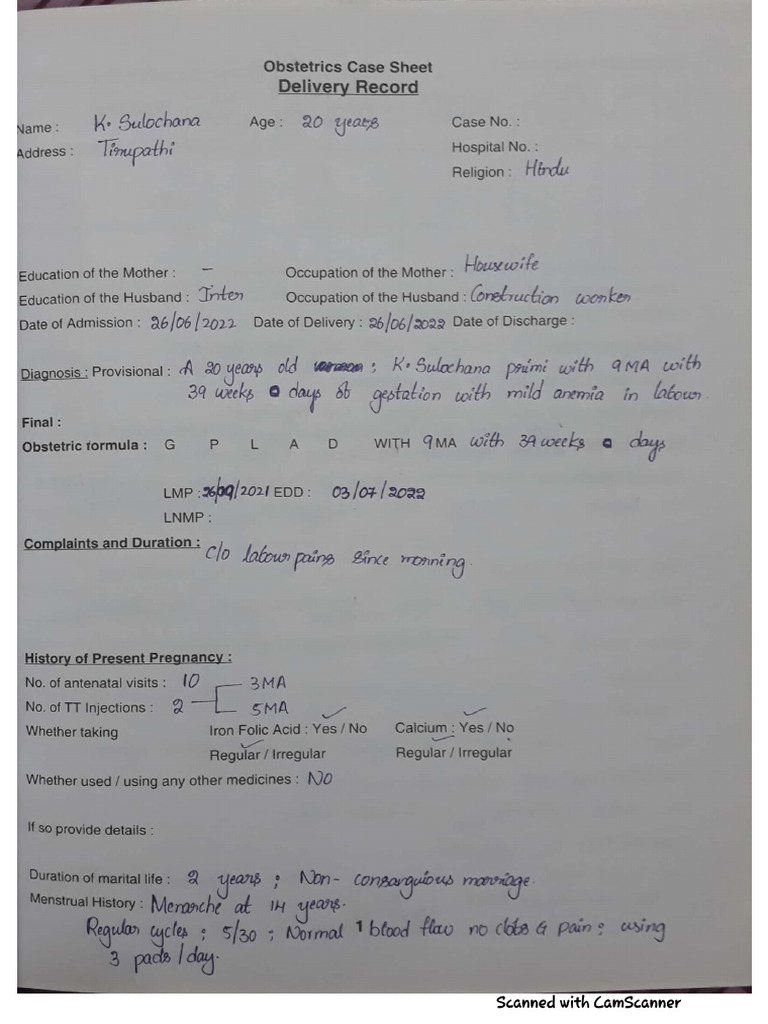 Obstetrics Case Sheet
Delivery Record
Name : K. Sulochana Age : 20 years Case No. :
Address : Tirupathi Hospital No. :
Religion : Hindu
Education of the Mother : – Occupation of the Mother : Housewife
Education of the Husband : Inter Occupation of the Husband : Construction worker
Date of Admission : 26/06/2022 Date of Delivery : 26/06/2022 Date of Discharge :
Diagnosis : Provisional : A 20 years old ; K. Sulochana primi with 9MA with
39 weeks 0 days of gestation with mild anemia in labour
Final :
Obstetric formula : G P L A D WITH 9 MA with 39 weeks 0 days
LMP : 26/09/2021 EDD : 03/07/2022
LNMP :
Complaints and Duration : C/O labour pains since morning.
History of Present Pregnancy :
No. of antenatal visits : 10 3MA
No. of TT Injections : 2 5MA
Whether taking Iron Folic Acid : Yes / No Calcium : Yes / No
Regular / Irregular Regular / Irregular
Whether used / using any other medicines : NO
If so provide details :
Duration of marital life : 2 years ; Non-consarguious marriage.
Menstrual History : Menarche at 14 years.
Regular cycles ; 5/30 ; Normal blood flow no clots & pain ; using
3 pads / day.
Scanned with CamScanner